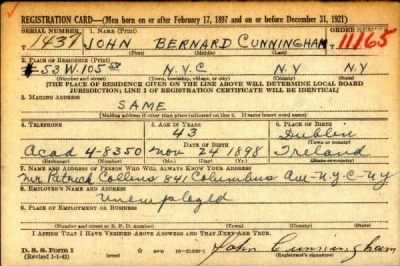 REGISTRATION CARD—(Men born on or after February 17, 1897 and on or before December 31, 1921)
SERIAL NUMBER 1. NAME (Print) ORDER NUMBER
1437 JOHN BERNARD CUNNINGHAM 11165
(First) (Middle) (Last)
2. PLACE OF RESIDENCE (Print)
53 W. 105 St N.Y.C N.Y N.Y
(Number and street) (Town, township, village, or city) (County) (State)
[THE PLACE OF RESIDENCE GIVEN ON THE LINE ABOVE WILL DETERMINE LOCAL BOARD
JURISDICTION; LINE 2 OF REGISTRATION CERTIFICATE WILL BE IDENTICAL]
3. MAILING ADDRESS
SAME
[Mailing address if other than place indicated on line 2. If same insert word same]
4. TELEPHONE 5. AGE IN YEARS 6. PLACE OF BIRTH
43 Dublin
DATE OF BIRTH (Town or county)
Acad 4-8350 Nov 24 1898 Ireland
(Exchange) (Number) (Mo.) (Day) (Yr.) (State or country)
7. NAME AND ADDRESS OF PERSON WHO WILL ALWAYS KNOW YOUR ADDRESS
Mr Patrick Collins 841 Columbus Ave-N.Y.C-N.Y
8. EMPLOYER'S NAME AND ADDRESS
Unemployed
9. PLACE OF EMPLOYMENT OR BUSINESS
(Number and street or R. F. D. number) (Town) (County) (State)
I AFFIRM THAT I HAVE VERIFIED ABOVE ANSWERS AND THAT THEY ARE TRUE.
D. S. S. Form 1
(Revised 1-1-42) John Cunningham
(Registrant's signature)